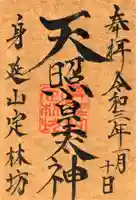 奉拝 令和三年一月十日
天照皇大神
身延山定林坊